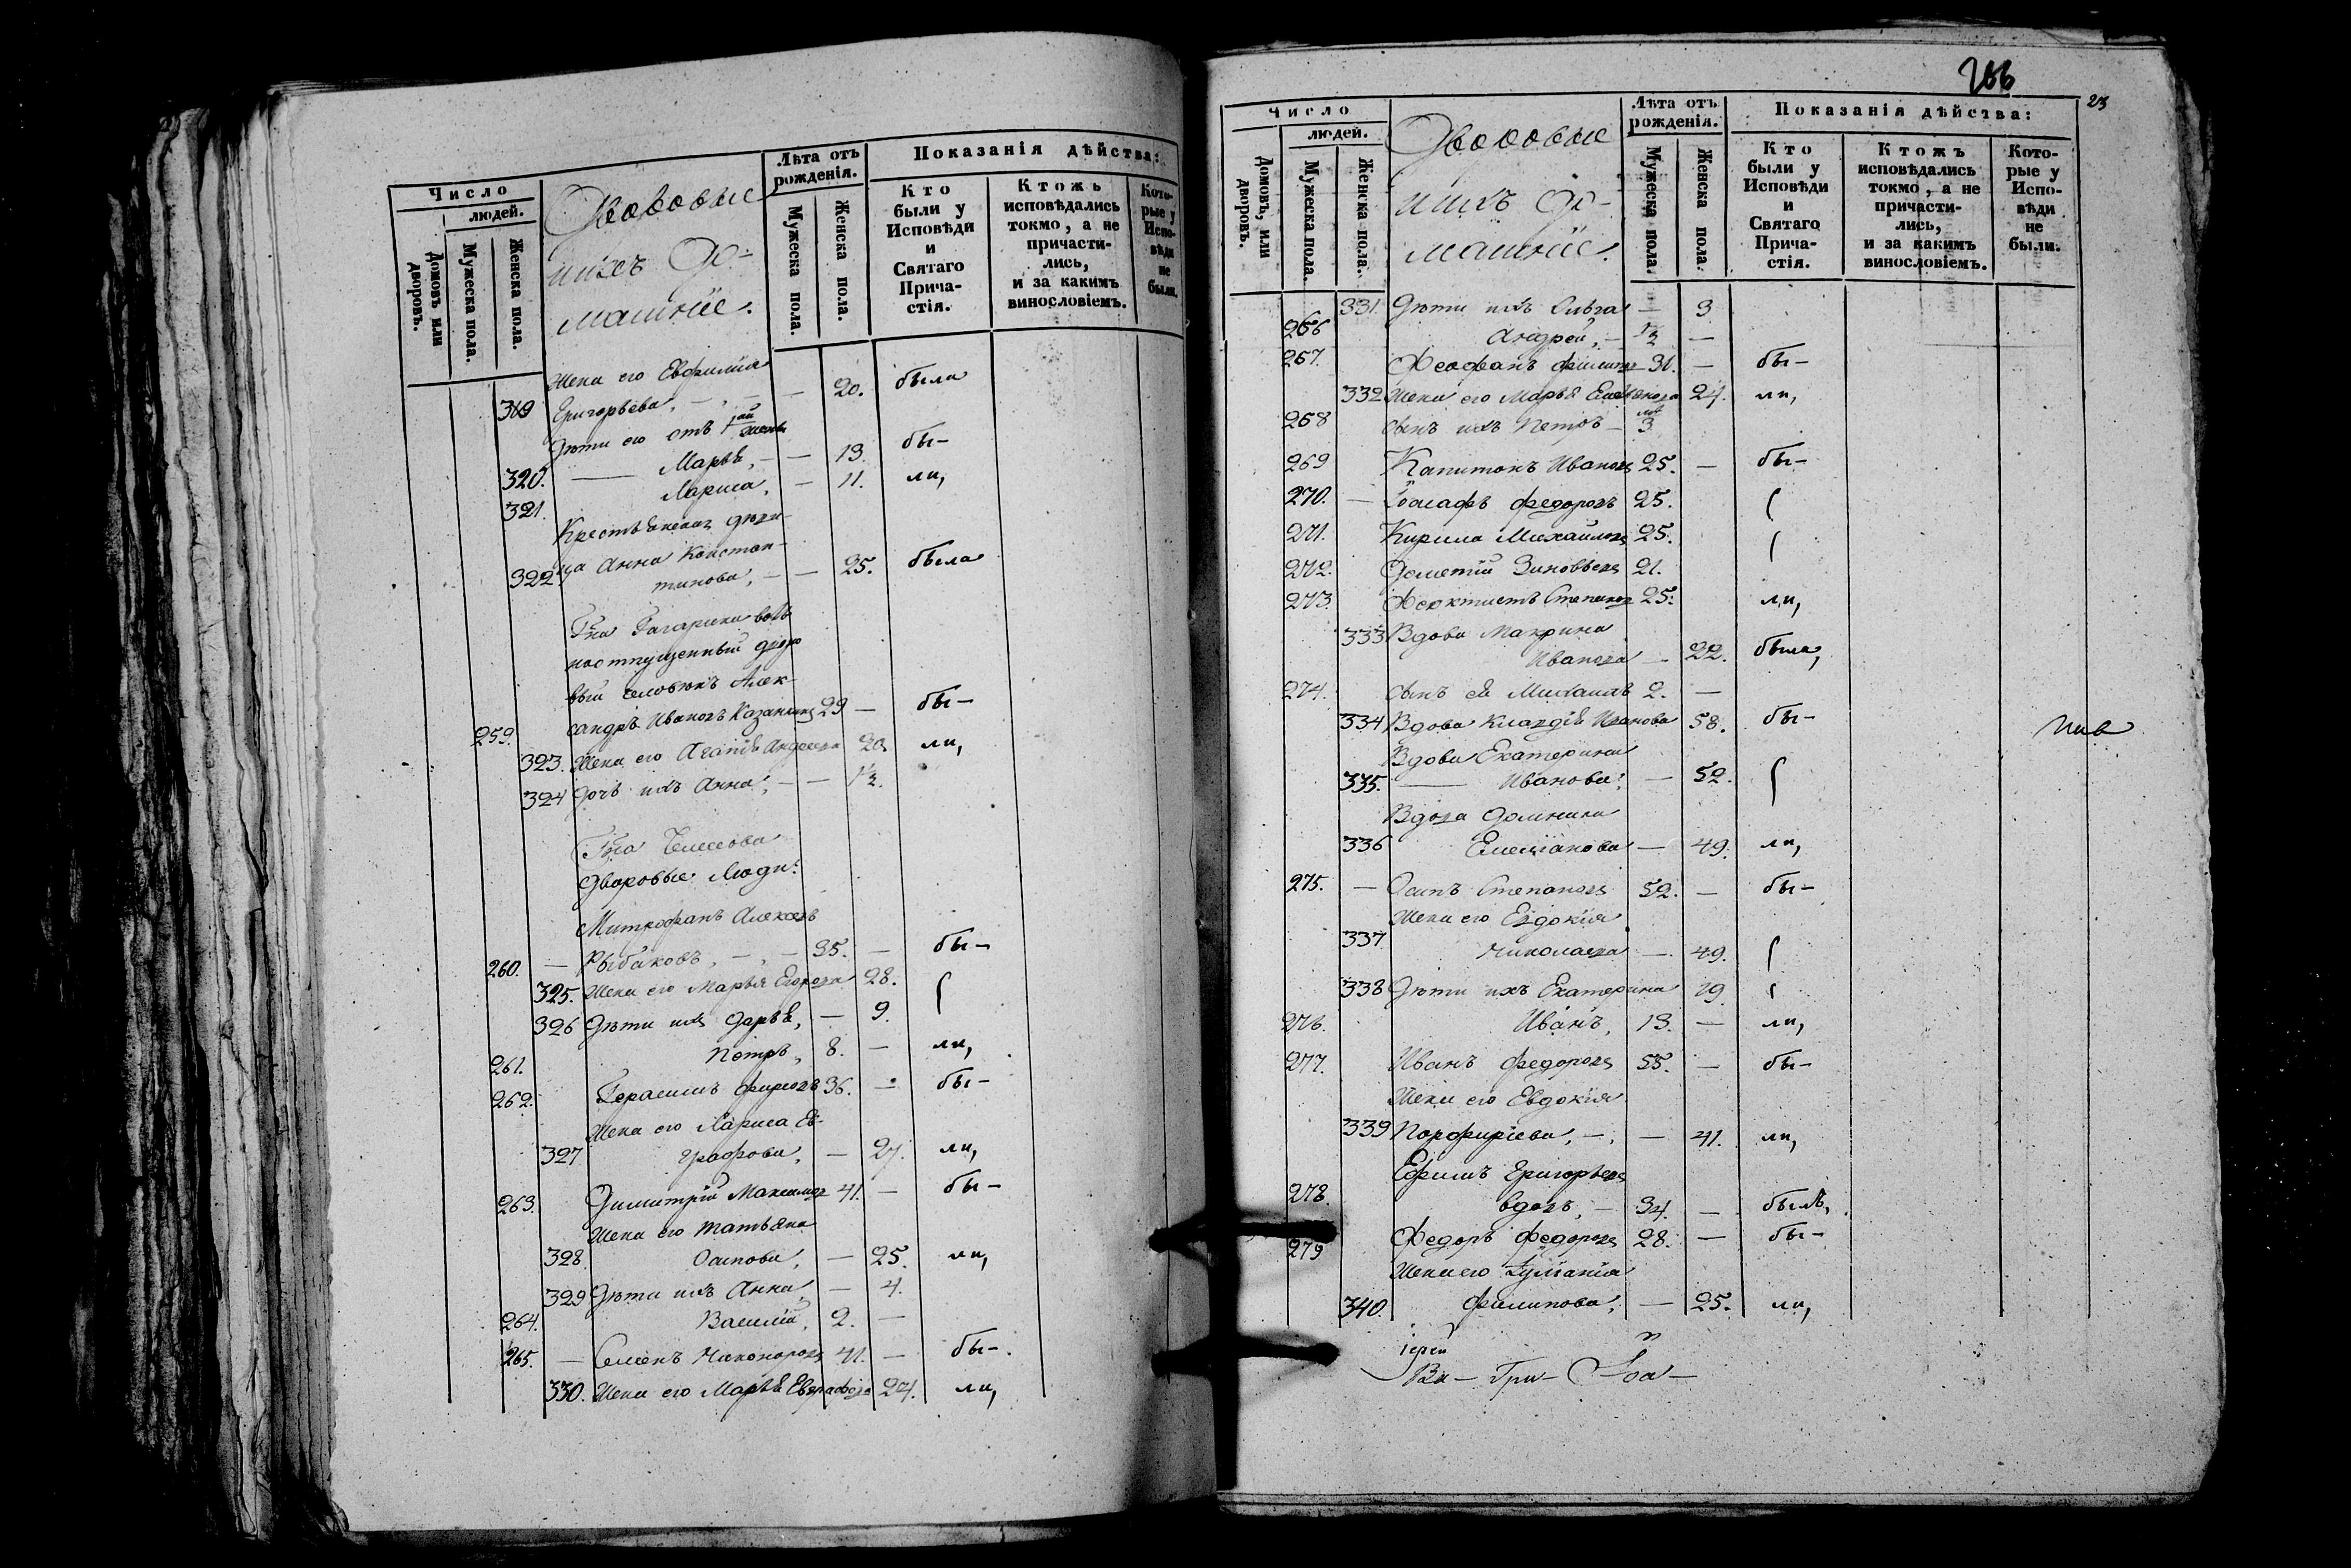 Число
людей.
Домовъ или дворовъ.
Мужеска пола.
Женска пола.
Дворовые
ихъ До-
машніе.
Лѣта отъ рожденія.
Мужеска пола.
Женска пола.
Показанія дѣйства:
Кто были у Исповѣди и Святаго Прича-стія.
Ктожъ исповѣдались токмо, а не причасти-лись, и за какимъ винословіемъ.
Кото-рые у Испо-вѣди не были.
Жена его Евфимія
319 Григорьева, — — 20. была
Дѣти его отъ 1ой жены
320. — Марья, — — 13. бы-
321. Лариса, — 11. ли,
Крестьянская дѣви-
322 ца Анна Констан-
тинова, — — 25. была
Гна Гагарина воль
ноотпущенный дворо
вый человѣкъ Алек-
259. сандръ Ивановъ 29 — бы-
323. Жена его Агапія Андреева 20. ли,
324 Дочь ихъ Анна, — — 1/2.
Гна
Дворовые Люди:
Митрофанъ Алексѣевъ
260. — Рыбаковъ, — , — 35. — бы-
325. Жена его Марья Егорова 28.
326 Дѣти ихъ Дарья, — 9.
261. Петръ, 8. — ли,
262. Герасимъ Фирсовъ 36. — бы-
Жена его Лариса Ев-
327 графова, — 27. ли,
263. Димитрій Максимовъ 41. — бы-
Жена его Татьяна
328 Осипова, — 25. ли,
329 Дѣти ихъ Анна, — 4.
264. Василій, 2. —
265. — Семенъ Никоноровъ 41. — бы-
330. Жена его Марья Евграфова 24. ли,
266
23
Число
людей.
Домовъ, или дворовъ.
Мужеска пола.
Женска пола.
Дворовые
ихъ До-
машніе.
Лѣта отъ рожденія.
Мужеска пола.
Женска пола.
Показанія дѣйства:
Кто были у Исповѣди и Святаго Прича-стія.
Ктожъ исповѣдались токмо, а не причасти-лись, и за какимъ винословіемъ.
Кото-рые у Испо-вѣди не были.
331. Дѣти ихъ Ольга — 3
266 Андрей, — 1/2 —
267. Феофанъ Филипповъ 31. — бы-
332 Жена его Марья 24. ли,
268 Сынъ ихъ Петръ — 3
269 Капитонъ Ивановъ 25. — бы-
270. — Іоасафъ Федоровъ 25.
271. Кирила Михайловъ 25.
272. Дометій Зиновьевъ 21.
273. Феоктистъ Степановъ 25. ли,
333 Вдова Макрина
Иванова — 22. была,
274. Сынъ ея Михаилъ 2. —
334 Вдова Клавдія Иванова 58. бы-
Вдова Екатерина
335. — Иванова, — 52.
Вдова Домника
336 Емельянова — 49. ли,
275. — Осипъ Степановъ 52. — бы-
Жена его Евдокія
337 Николаева — 49.
338 Дѣти ихъ Екатерина 19
276. Иванъ, 13. — ли,
277. Иванъ Федоровъ 55. — бы-
Жена его Евдокія
339 Порфиріева, — , — 41. ли,
Ефимъ Григорьевъ
278. вдовъ, — 34. — былъ,
279 Федоръ Федоровъ 28. — бы-
Жена его Іуліанія
340. Филипова, — 25. ли,
Іерей
Ва — Гри — Іоа —